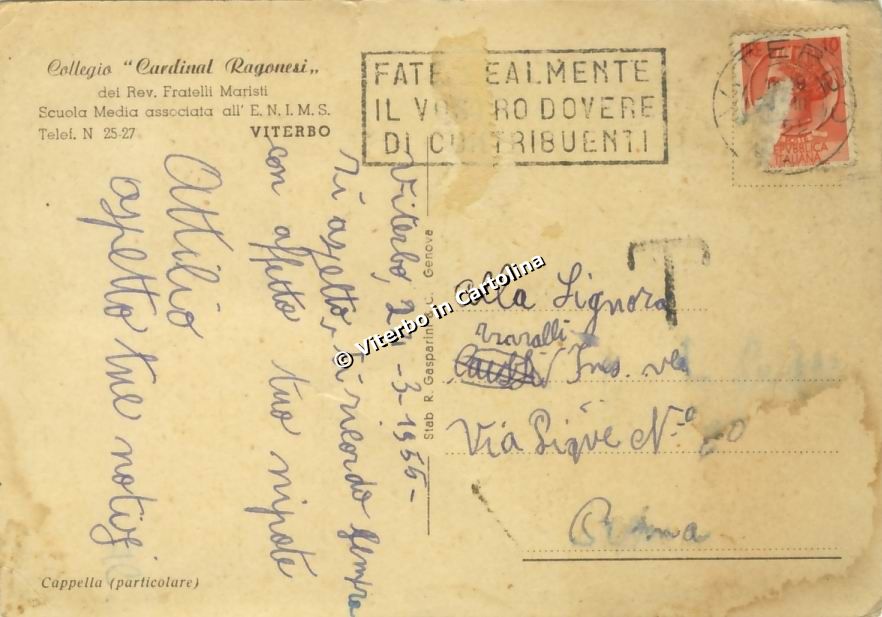 Collegio "Cardinal Ragonesi„
dei Rev. Fratelli Maristi
Scuola Media associata all' E. N. I. M. S.
Telef. N 25-27 VITERBO
FATE EALMENTE
IL VO RO DOVERE
DI CO TRIBUENTI
VITERBO
LIRE 10
POSTE
REPVBBLICA
ITALIANA
T
Viterbo, 2 -3-1955-
ti aspetto, ti ricordo sempre
con affetto tuo nipote
Attilio
aspetto tue notizie
Stab. R. Gasparini & C. Genova
© Viterbo in Cartolina
Alla Signora
Ines. ved
Via Pigve N.º 60
Roma
Cappella (particolare)